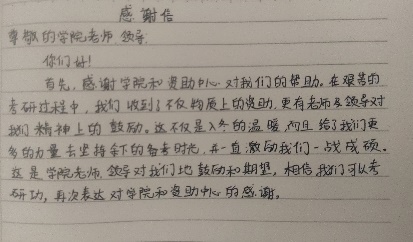 感谢信
尊敬的学院老师 领导
你们好!
首先,感谢学院和资助中心对我们的帮助。在艰苦的
考研过程中,我们收到了不仅物质上的资助,更有老师及领导对
我们精神上的鼓励。这不仅是入冬的温暖,而且给了我们更
多的力量去坚持余下的备考时光,并一直激励我们一战成硕。
这是学院老师,领导对我们地鼓励和期望,相信我们可以考
研功,再次表达对学院和资助中心的感谢。